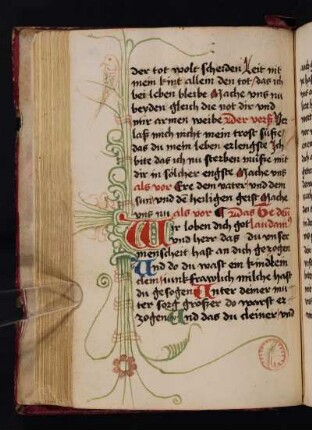 der tot wolt scheiden Leit nit
mein kint allein den tot / das ich
bei leben bleibe Mache vns nu
beyden gleich die not dir vnd
mir armen weibe Der verß Ver
laß mich nicht mein trost süsse /
das du mein leben erlengste Ich
bite das ich nu sterben müsse mit
dir in sölcher engste Mache vns
als vor Ere dem vater vnd dem
sun vnd de heiligen geist Mache
vns nu als vor Das Te deu
Wir loben dich got laudam
vnd herr das du vnser
menscheit hast an dich gezogen
Und do du wast ein kindlein
clein iunkfrawlich milche hast
du gesogen Unter deiner mu
ter sorg grösser do warst er
zogen Und das du cleiner vnd